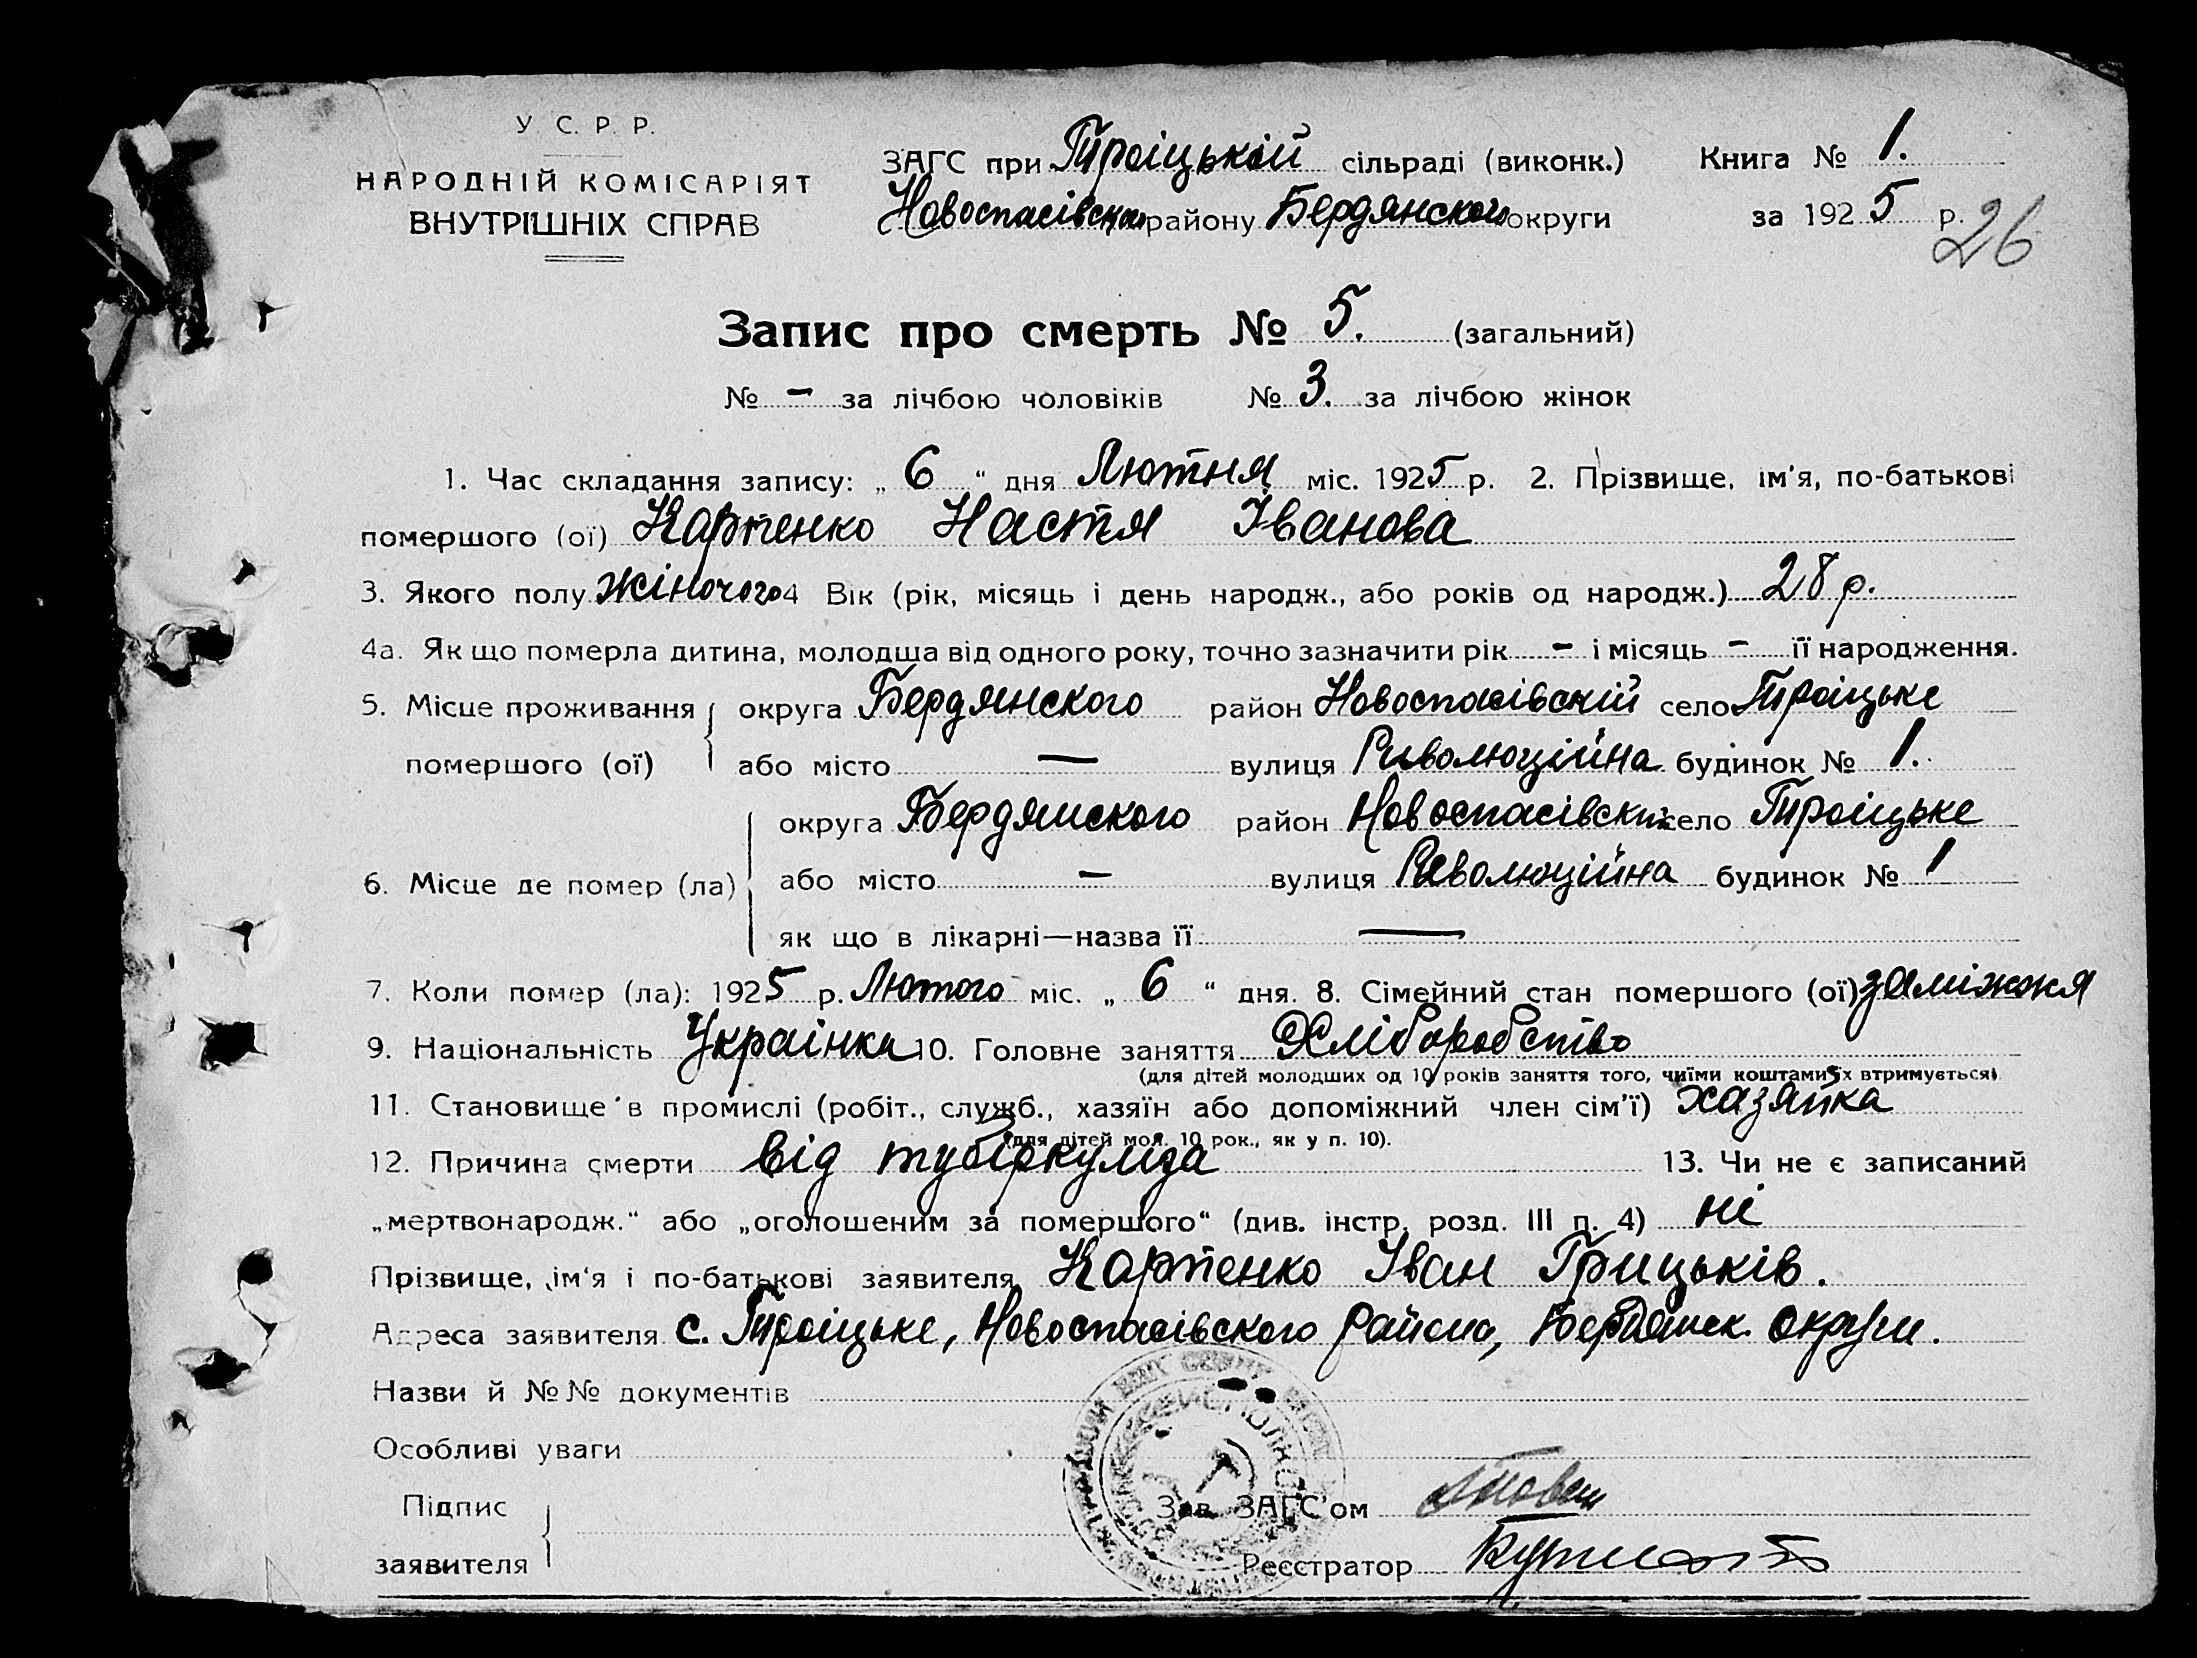 У. С. Р. Р.
НАРОДНІЙ КОМІСАРІЯТ
ВНУТРІШНІХ СПРАВ
ЗАГС при Троіцькій сільраді (виконк.) Книга № 1.
Новоспасівського району Бердянского округи за 1925 р.
26
Запис про смерть № 5. (загальний)
№ - за лічбою чоловіків № 3. за лічбою жінок
1. Час складання запису: „6“ дня Лютня міс. 1925 р. 2. Прізвище, ім'я, по-батькові
помершого (ої) Карпенко Настя Іванова
3. Якого полу жіночого 4 Вік (рік, місяць і день народж., або років од народж.) 28 р.
4а. Як що померла дитина, молодша від одного року, точно зазначити рік - і місяць - її народження.
5. Місце проживання округа Бердянского район Новоспасівскій село Троіцьке
помершого (ої) або місто — вулиця Риволюційна будинок № 1.
округа Бердянского район Новоспасівский село Троіцьке
6. Місце де помер (ла) або місто - вулиця Революційна будинок № 1
як що в лікарні—назва її —
7. Коли помер (ла): 1925 р. Лютого міс. „6“ дня. 8. Сімейний стан помершого (ої) заміжжя
9. Національність Украінка 10. Головне заняття Хліборобство
(для дітей молодших од 10 років заняття того, чиїми коштами їх втримується)
11. Становище в промислі (робіт., служб., хазяїн або допоміжний член сім'ї) хазяйка
(для дітей мол. 10 рок., як у п. 10).
12. Причина смерти від тубіркульоза 13. Чи не є записаний
„мертвонародж.“ або „оголошеним за помершого“ (див. інстр. розд. III п. 4) ні
Прізвище, ім'я і по-батькові заявителя Карпенко Іван Грицьків.
Адреса заявителя с. Троіцьке, Новоспасівского району, Бердянск. округи.
Назви й №№ документів
Особливі уваги
Підпис
заявителя
Зав. ЗАГС'ом
Реєстратор